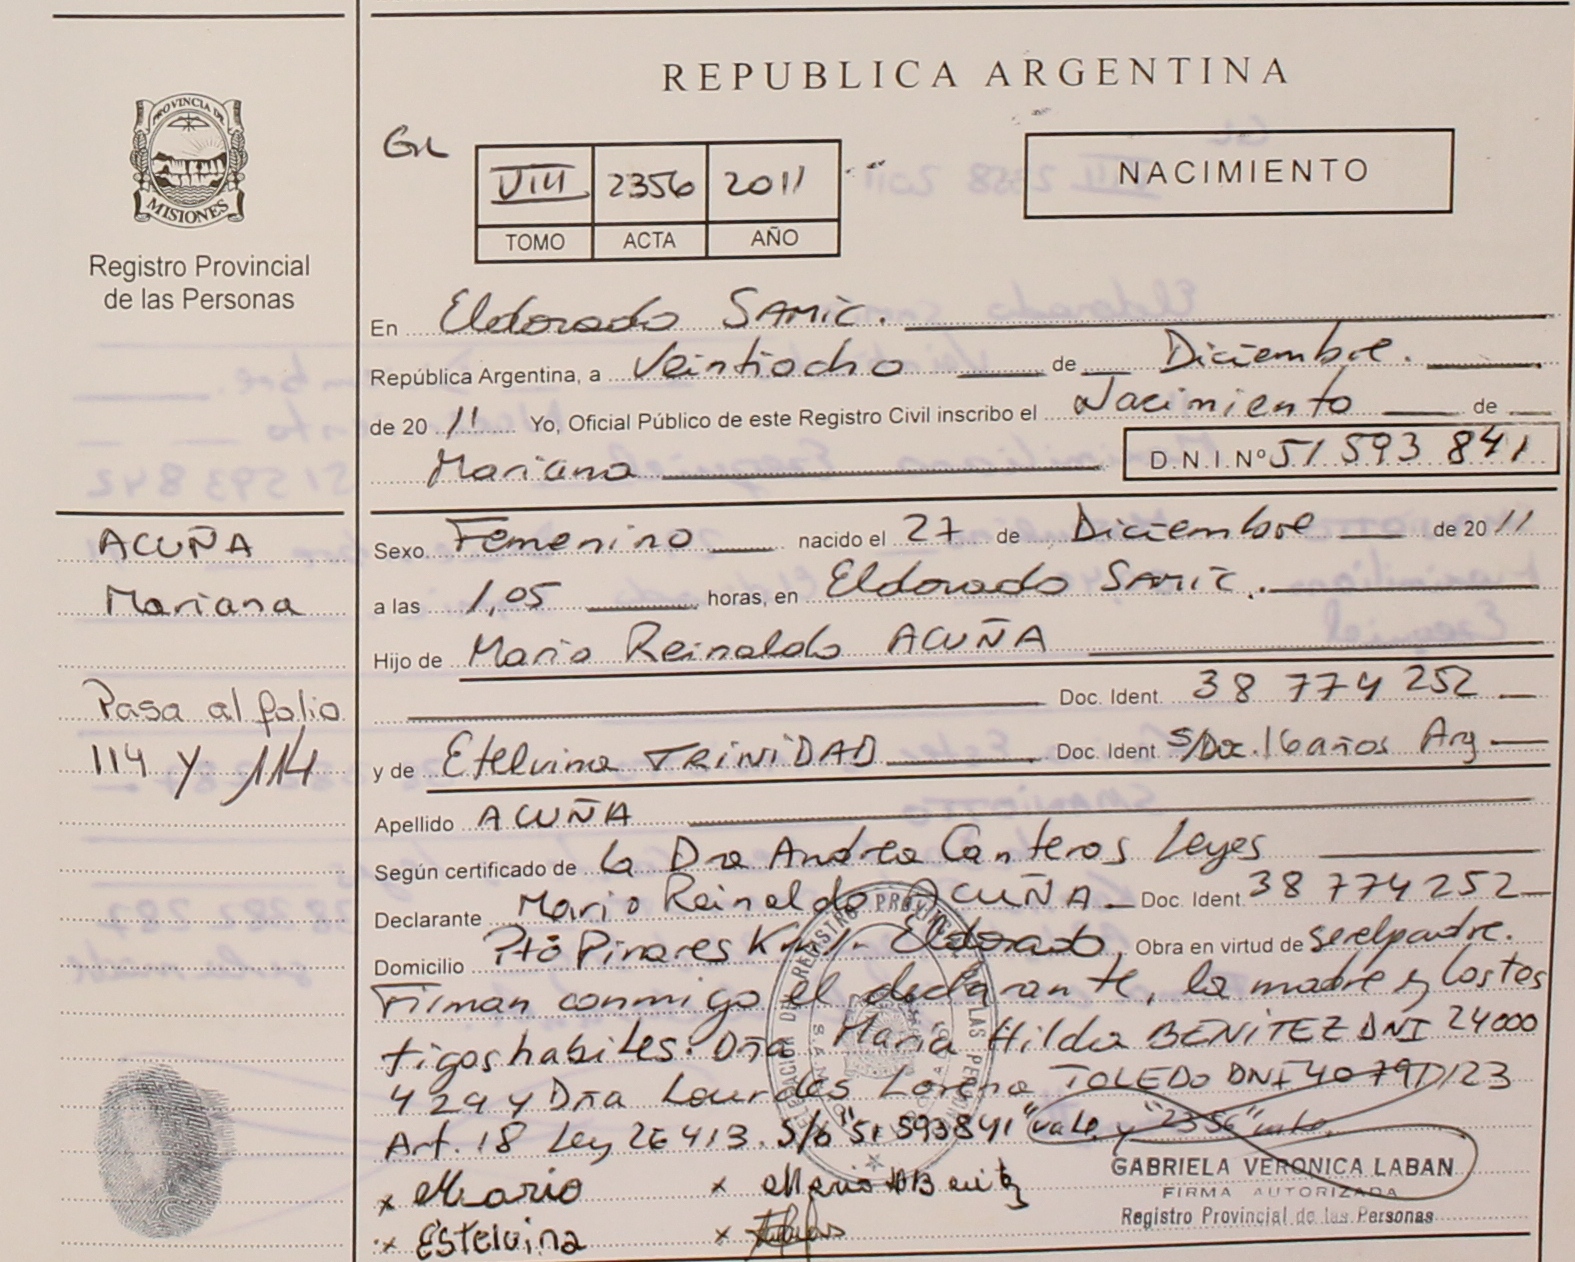 REPUBLICA ARGENTINA
PROVINCIA DE
MISIONES
Registro Provincial
de las Personas
GL
VIII 2356 2011
TOMO ACTA AÑO
NACIMIENTO
En Eldorado SAMIC.
República Argentina, a Veintiocho de Diciembre.
de 20 11 Yo, Oficial Público de este Registro Civil inscribo el Nacimiento de
Mariana D.N.I.Nº 51 593 841
ACUÑA
Mariana
Pasa al folio
114 y 114
Sexo Femenino nacido el 27 de Diciembre de 20 11
a las 1,05 horas, en Eldorado SAMIC.
Hijo de Mario Reinaldo ACUÑA
Doc. Ident. 38 774 252
y de Etelvina TRINIDAD Doc. Ident. s/Doc. 16 años Arg
Apellido ACUÑA
Según certificado de la Dra Andrea Canteros Leyes
Declarante Mario Reinaldo ACUÑA Doc. Ident. 38 774 252
Domicilio Pto Pinares Km 1- Eldorado, Obra en virtud de ser el padre.
Firman conmigo el declarante, la madre y los tes
tigos habiles: Dña Maria Hilda BENITEZ DNI 24000
429 y Dña Lourdes Lorena TOLEDO DNI 4079
Art. 18 Ley 26413. S/b "51 593841" vale y "2356" vale.
x Mario x
x Estelvina x
GABRIELA VERONICA LABAN
FIRMA AUTORIZADA
Registro Provincial de las Personas